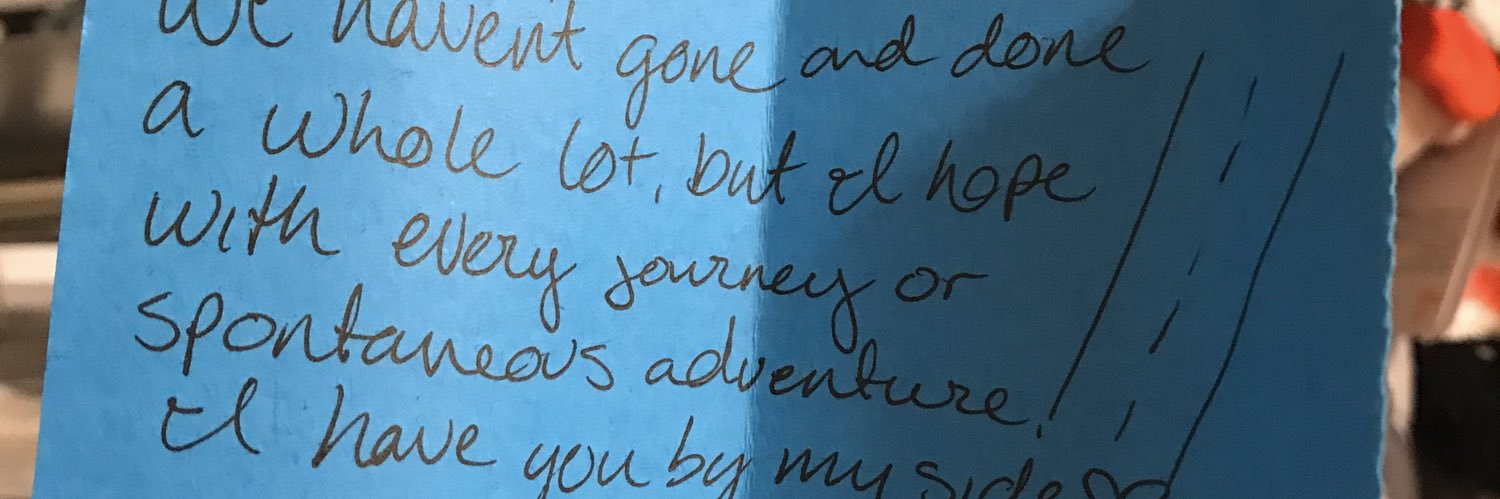 We haven't gone and done
a whole lot, but I hope
with every journey or
spontaneous adventure,
I have you by my side